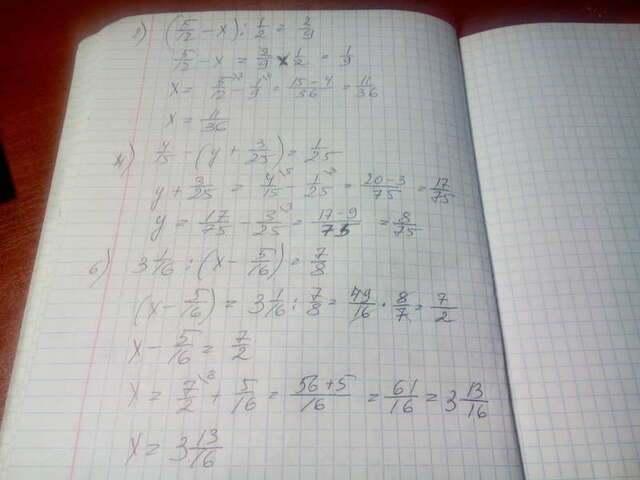 2) (5/12 - x) : 1/2 = 2/9
5/12 - x = 2/9 × 1/2 = 1/9
x = 5/12 - 1/9 = 15-4/36 = 11/36
x = 11/36
4) 4/15 - (y + 3/25) = 1/25
y + 3/25 = 4/15 - 1/25 = 20-3/75 = 17/75
y = 17/75 - 3/25 = 17-9/75 = 8/75
6) 3 1/16 : (x - 5/16) = 7/8
(x - 5/16) = 3 1/16 : 7/8 = 49/16 · 8/7 = 7/2
x - 5/16 = 7/2
x = 7/2 + 5/16 = 56+5/16 = 61/16 = 3 13/16
x = 3 13/16